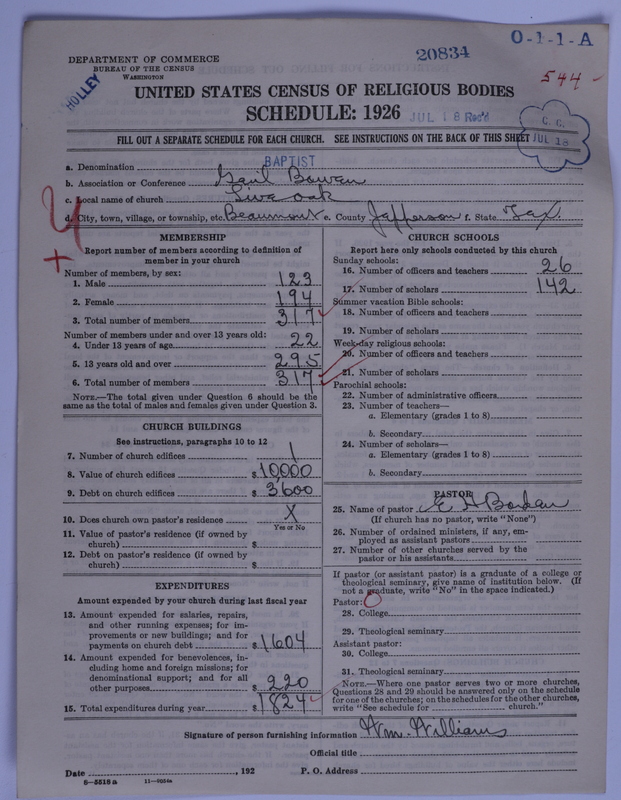 DEPARTMENT OF COMMERCE
BUREAU OF THE CENSUS
WASHINGTON
HOLLEY
20834
O-1-1-A
544
UNITED STATES CENSUS OF RELIGIOUS BODIES
SCHEDULE: 1926
JUL 18 Rec'd
C. C.
JUL 13
FILL OUT A SEPARATE SCHEDULE FOR EACH CHURCH. SEE INSTRUCTIONS ON THE BACK OF THIS SHEET
a. Denomination BAPTIST
b. Association or Conference
c. Local name of church Live oak
d. City, town, village, or township, etc. Beaumont e. County Jefferson f. State Tex.
MEMBERSHIP
Report number of members according to definition of
member in your church
Number of members, by sex:
1. Male 123
2. Female 194
3. Total number of members 317
Number of members under and over 13 years old:
4. Under 13 years of age 22
5. 13 years old and over 295
6. Total number of members 317
NOTE.—The total given under Question 6 should be the
same as the total of males and females given under Question 3.
CHURCH BUILDINGS
See instructions, paragraphs 10 to 12
7. Number of church edifices 1
8. Value of church edifices $ 10,000
9. Debt on church edifices $ 3,600
10. Does church own pastor's residence X
Yes or No
11. Value of pastor's residence (if owned by
church) $
12. Debt on pastor's residence (if owned by
church) $
EXPENDITURES
Amount expended by your church during last fiscal year
13. Amount expended for salaries, repairs,
and other running expenses; for im-
provements or new buildings; and for
payments on church debt $ 1604
14. Amount expended for benevolences, in-
cluding home and foreign missions; for
denominational support; and for all
other purposes $ 220
15. Total expenditures during year $ 1824
CHURCH SCHOOLS
Report here only schools conducted by this church
Sunday schools:
16. Number of officers and teachers 26
17. Number of scholars 142
Summer vacation Bible schools:
18. Number of officers and teachers
19. Number of scholars
Week-day religious schools:
20. Number of officers and teachers
21. Number of scholars
Parochial schools:
22. Number of administrative officers
23. Number of teachers—
a. Elementary (grades 1 to 8)
b. Secondary
24. Number of scholars—
a. Elementary (grades 1 to 8)
b. Secondary
PASTOR
25. Name of pastor E
(If church has no pastor, write "None")
26. Number of ordained ministers, if any, em-
ployed as assistant pastors
27. Number of other churches served by the
pastor or his assistants
If pastor (or assistant pastor) is a graduate of a college or
theological seminary, give name of institution below. (If
not a graduate, write "No" in the space indicated.)
Pastor: O
28. College
29. Theological seminary
Assistant pastor:
30. College
31. Theological seminary
NOTE.—Where one pastor serves two or more churches,
Questions 28 and 29 should be answered only on the schedule
for one of the churches; on the schedules for the other churches,
write "See schedule for church."
Signature of person furnishing information Wm. Williams
Official title
Date , 192 P. O. Address
8-5518 a 11-9034a